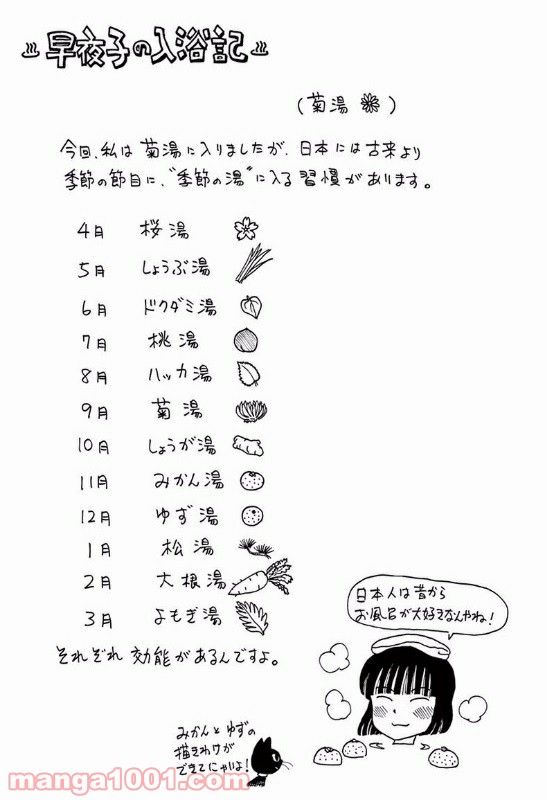 早夜子の入浴記
(菊湯)
今回、私は菊湯に入りましたが、日本には古来より
季節の節目に、"季節の湯"に入る習慣があります。
4月 桜湯
5月 しょうぶ湯
6月 ドクダミ湯
7月 桃湯
8月 ハッカ湯
9月 菊湯
10月 しょうが湯
11月 みかん湯
12月 ゆず湯
1月 松湯
2月 大根湯
3月 よもぎ湯
それぞれ効能があるんですよ。
日本人は昔から
お風呂が大好きなんやね!
みかんとゆずの
描きわけが
できてにゃいよ!
manga1001.com